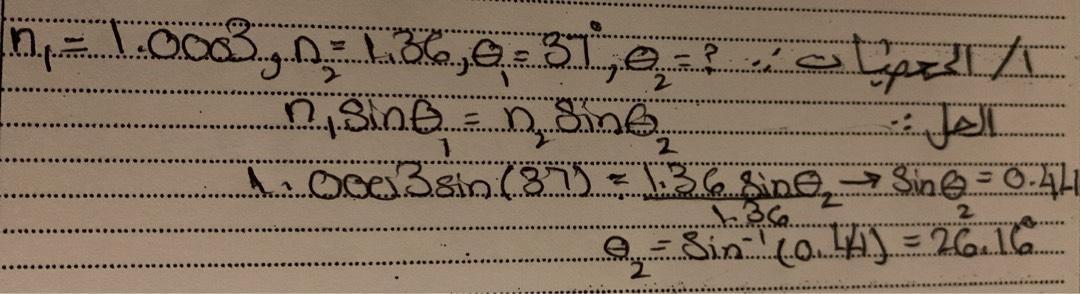 ١/ المعطيات :: n₁ = 1.0003 و n₂ = 1.36, θ₁ = 37°, θ₂ = ?
الحل :: n₁ sinθ₁ = n₂ sinθ₂
1.0003 sin(37) = 1.36 sinθ₂ / 1.36 → sinθ₂ = 0.44
θ₂ = sin⁻¹(0.44) = 26.16°